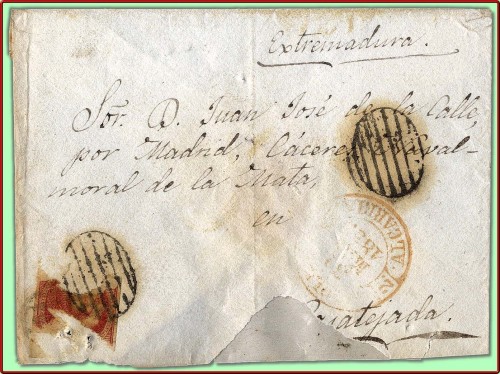 Extremadura.
Sor. D. Juan José de la Calle,
por Madrid, Cáceres, Naval-
moral de la Mata,
en
Casatejada.